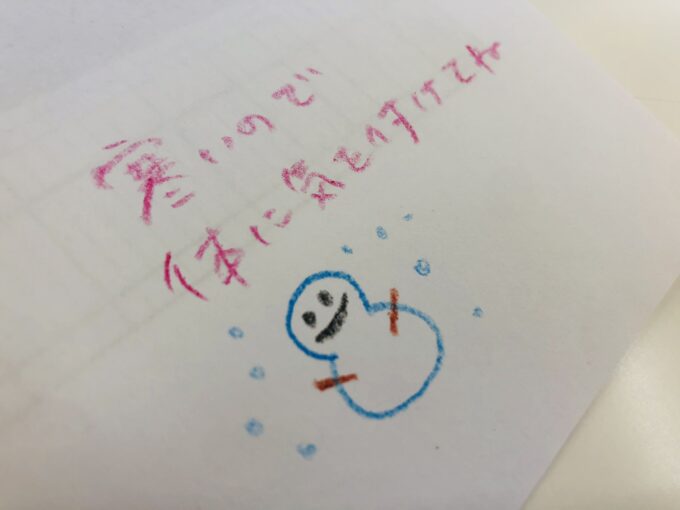 寒いので
体に気をつけてね